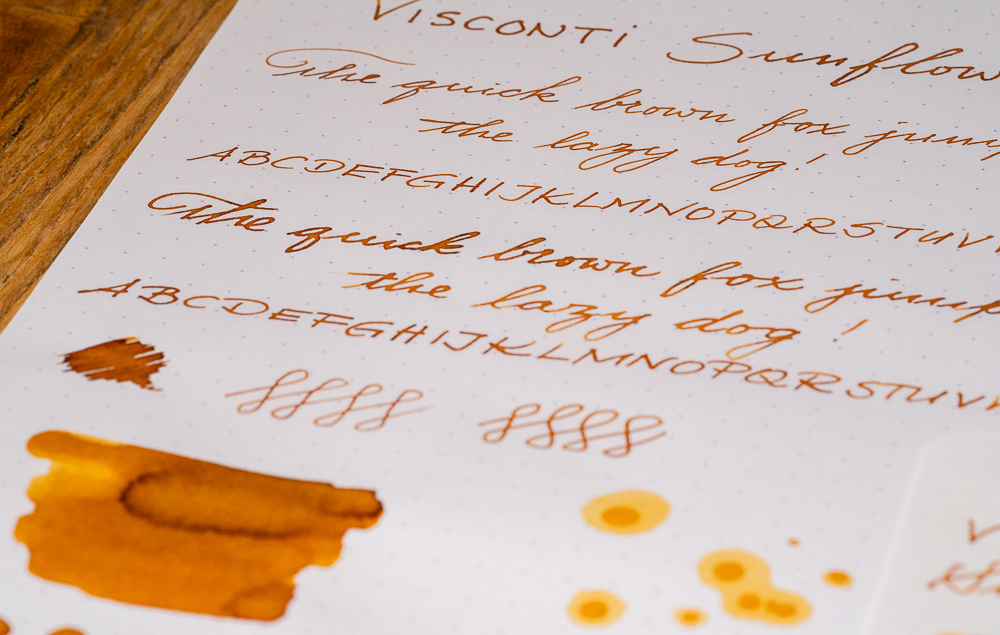 VISCONTI Sunflow
The quick brown fox jump
the lazy dog!
ABCDEFGHIJKLMNOPQRSTUV
The quick brown fox jump
the lazy dog!
ABCDEFGHIJKLMNOPQRSTUV